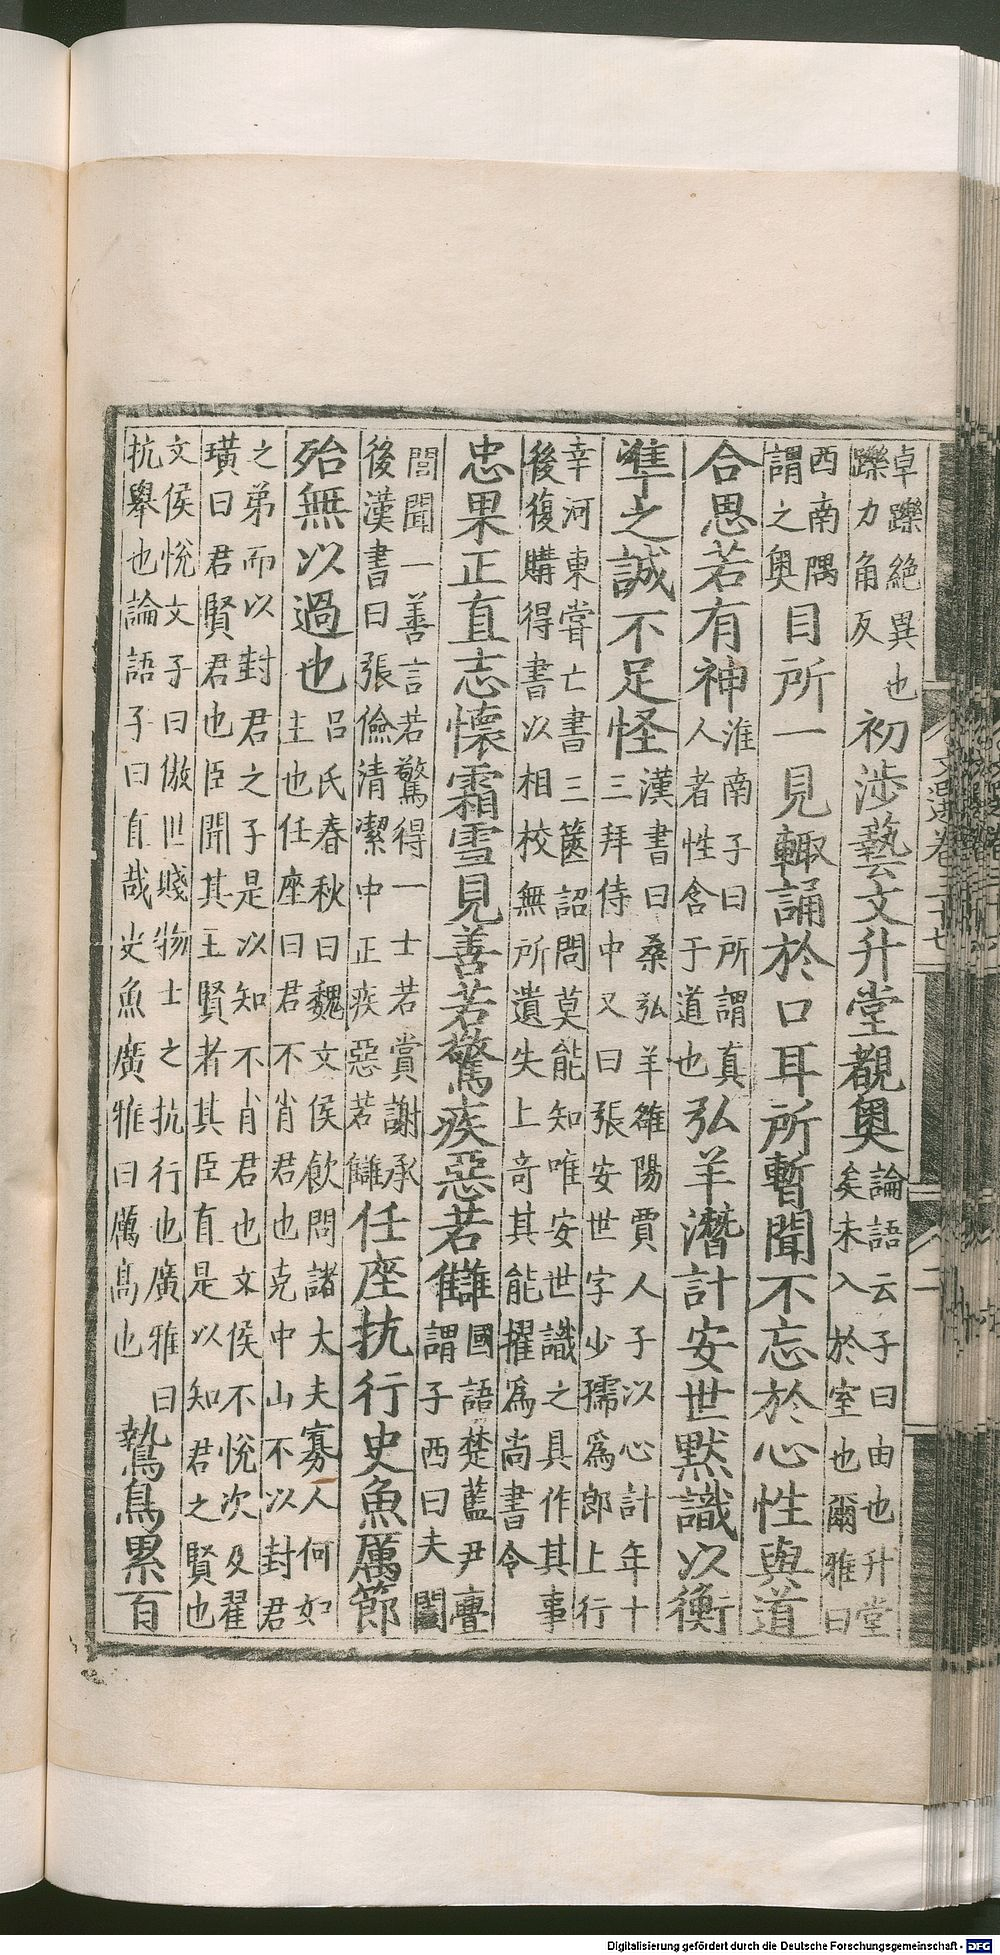 文選卷三十七
二
卓躒絶異也
躒力角反
初渉藝文升堂覩奧
論語云子曰由也升堂
矣未入於室也爾雅曰
西南隅
謂之奧
目所一見輙誦於口耳所暫聞不忘於心性與道
合思若有神
淮南子曰所謂真
人者性含于道也
弘羊潛計安世默識以衡
準之誠不足怪
漢書曰桑弘羊雒陽賈人子以心計年十
三拜侍中又曰張安世字少孺爲郎上行
幸河東甞亡書三篋詔問莫能知唯安世識之具作其事
後復購得書以相校無所遺失上奇其能擢爲尚書令
忠果正直志懷霜雪見善若驚疾惡若讎
國語楚藍尹亹
謂子西曰夫闔
閭聞一善言若驚得一士若賞謝承
後漢書曰張儉清潔中正疾惡若讎
任座抗行史魚厲節
殆無以過也
吕氏春秋曰魏文侯飲問諸大夫寡人何如
主也任座曰君不肖君也克中山不以封君
之弟而以封君之子是以知不肖君也文侯不悅次及翟
璜曰君賢君也臣聞其主賢者其臣直是以知君之賢也
文侯悅文子曰傲世賤物士之抗行也廣雅曰
抗舉也論語子曰直哉史魚廣雅曰厲高也
鷙鳥累百
Digitalisierung gefördert durch die Deutsche Forschungsgemeinschaft - DFG